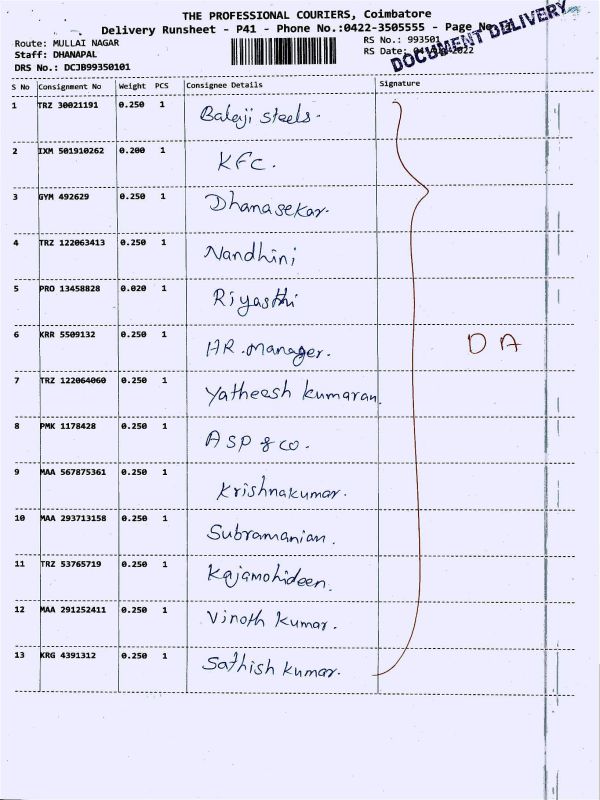 THE PROFESSIONAL COURIERS, Coimbatore
Delivery Runsheet - P41 - Phone No.:0422-3505555 - Page No
DOCUMENT DELIVERY
Route: MULLAI NAGAR
RS No.: 993501
Staff: DHANAPAL
RS Date:
DRS No.: DCJB99350101
S No Consignment No Weight PCS Consignee Details Signature
1 TRZ 30021191 0.250 1 Balaji Steels.
2 IXM 501910262 0.200 1 KFC.
3 GYM 492629 0.250 1 Dhanasekar.
4 TRZ 122063413 0.250 1 Nandhini
5 PRO 13458828 0.020 1 Riyasthi
6 KRR 5509132 0.250 1 HR.manager. DA
7 TRZ 122064060 0.250 1 Yatheesh kumaran.
8 PMK 1178428 0.250 1 ASP & co.
9 MAA 567875361 0.250 1 Krishnakumar.
10 MAA 293713158 0.250 1 Subramanian.
11 TRZ 53765719 0.250 1 Kajamohideen.
12 MAA 291252411 0.250 1 Vinoth kumar.
13 KRG 4391312 0.250 1 Sathish kumar.